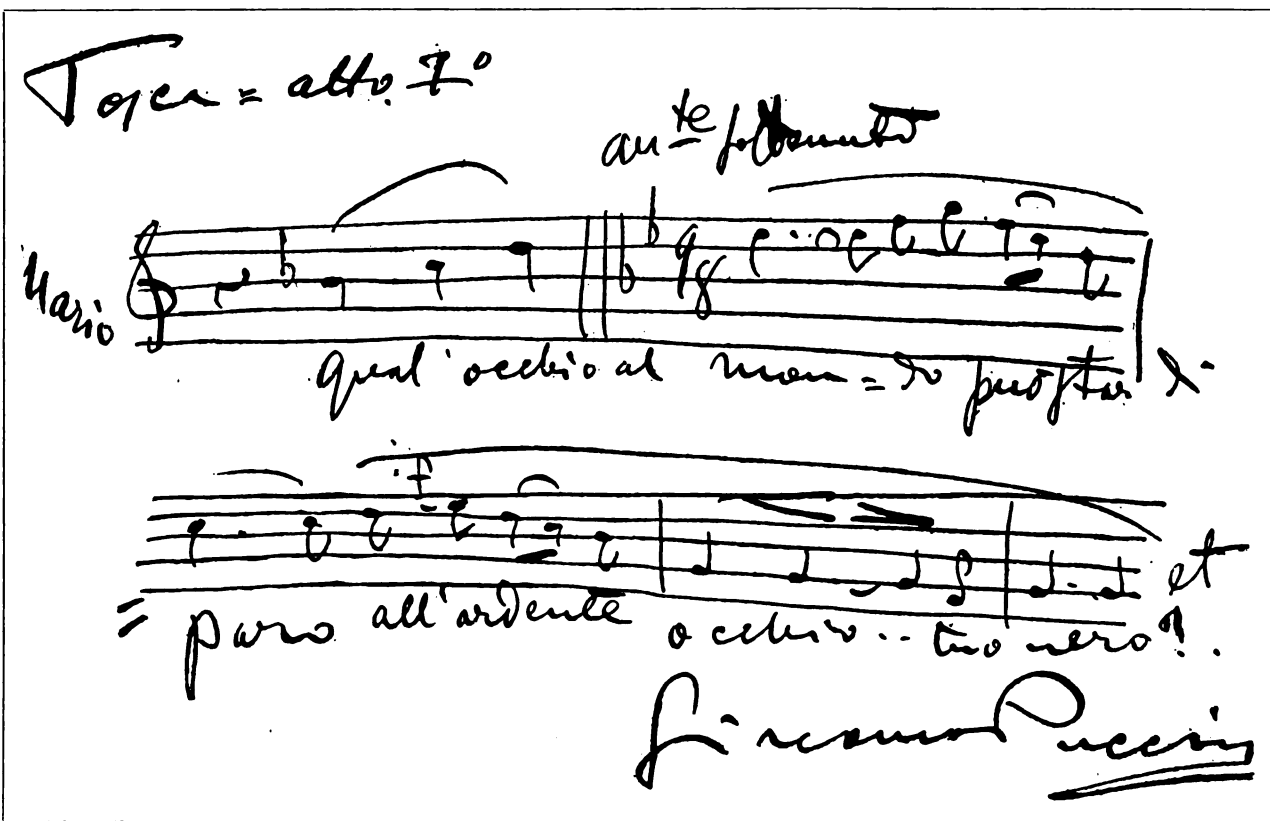 Tosca = atto. I°
an te sostenuto
Mario
qual' occhio al mon = do può star di
= paro all'ardente occhio .. tuo nero? . et
Giacomo Puccini